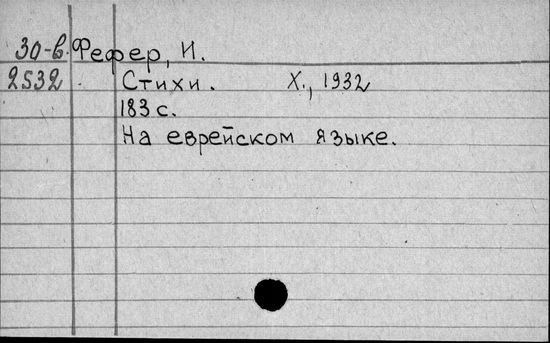 30-в. Фефер, И.
2532 Стихи. Х., 1932
183 с.
На еврейском языке.